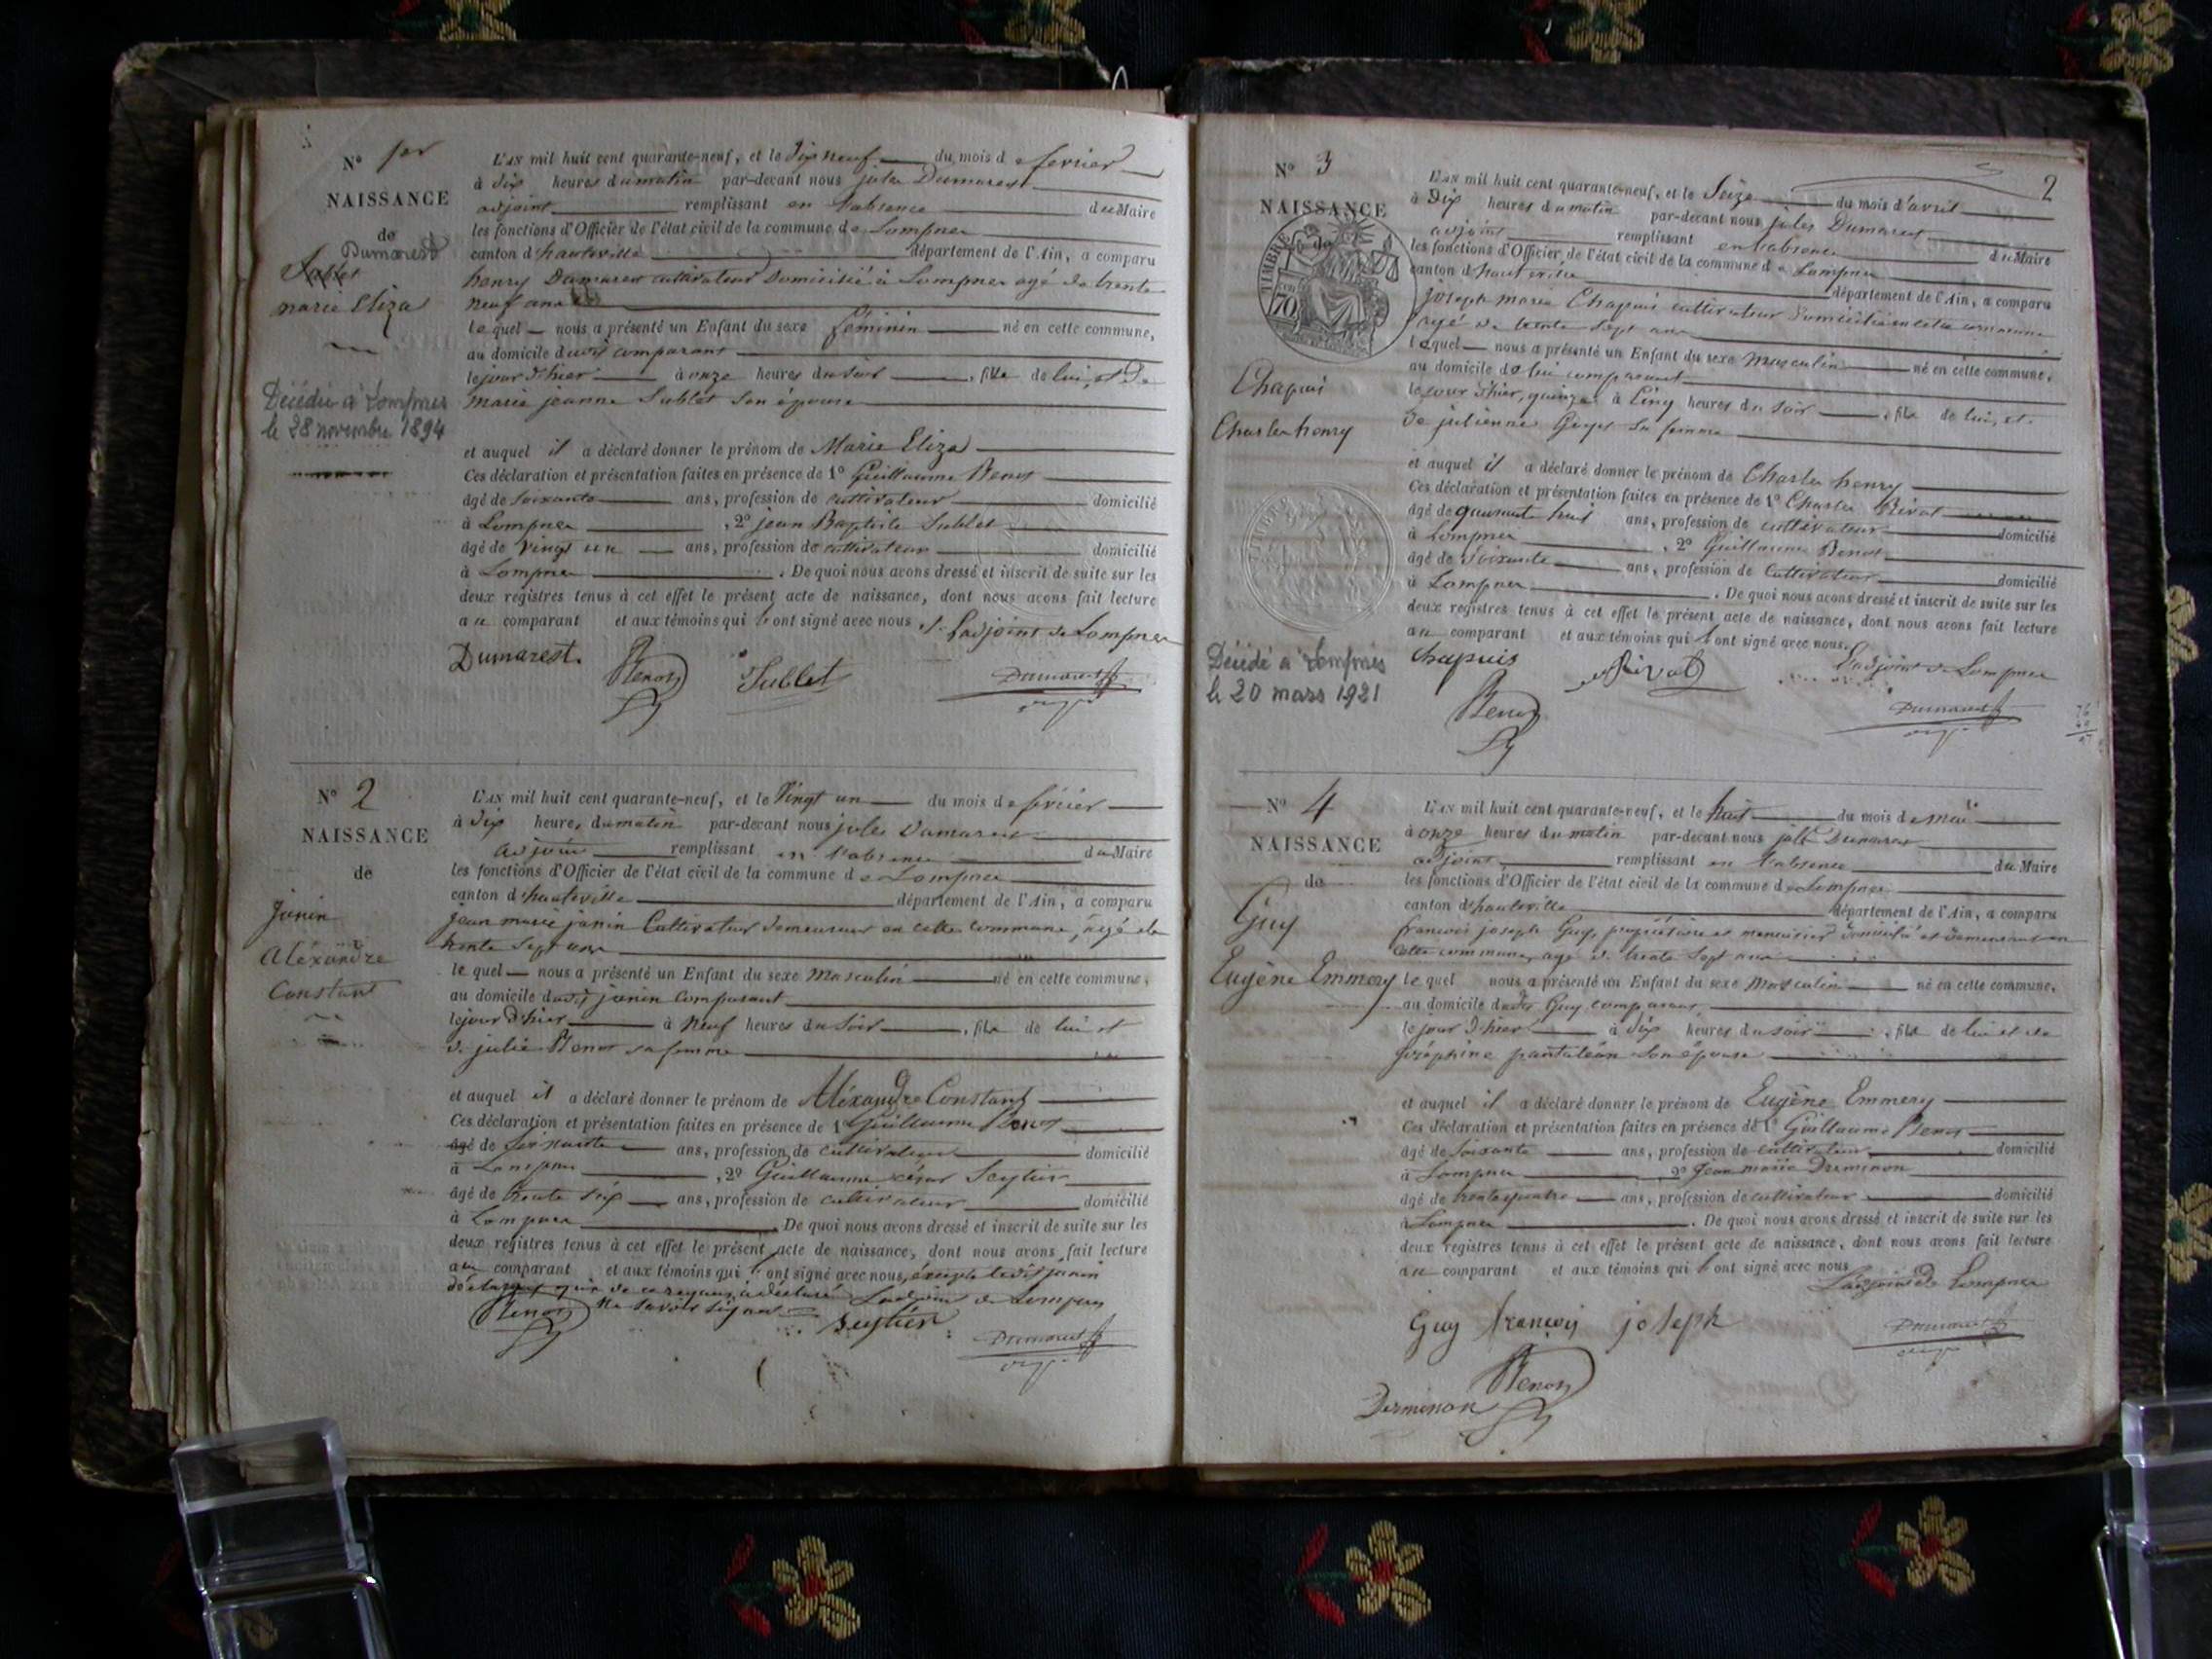 N° 1er
NAISSANCE
de
Dumarest
Sublet
marie Eliza
Décédée à Lompnes
le 28 novembre 1894
L'AN mil huit cent quarante-neuf, et le dix neuf du mois de fevrier
à dix heures du matin par-devant nous jules Dumarest
adjoint remplissant en l'absence du Maire
les fonctions d'Officier de l'état civil de la commune de Lompnes
canton d'hauteville département de l'Ain, a comparu
henry Dumarest cultivateur domicilié à Lompnes agé de trente
neuf ans
lequel nous a présenté un Enfant du sexe féminin né en cette commune,
au domicile dudit comparant
le jour d'hier à onze heures du soir , fille de lui, et de
marie jeanne Sublet son épouse
et auquel il a déclaré donner le prénom de Marie Eliza
Ces déclaration et présentation faites en présence de 1° Guillaume Benot
âgé de soixante ans, profession de cultivateur domicilié
à Lompnes , 2° jean Baptiste Sublet
âgé de vingt un ans, profession de cultivateur domicilié
à Lompnes . De quoi nous avons dressé et inscrit de suite sur les
deux registres tenus à cet effet le présent acte de naissance, dont nous avons fait lecture
au comparant et aux témoins qui ont signé avec nous L'adjoint de Lompnes
Dumarest. Benot Sublet Dumarest
N° 2
NAISSANCE
de
Janin
Aléxandre
Constant
L'AN mil huit cent quarante-neuf, et le Vingt un du mois de février
à dix heures du matin par-devant nous jules Dumarest
adjoint remplissant en l'absence du Maire
les fonctions d'Officier de l'état civil de la commune de Lompnes
canton d'hauteville département de l'Ain, a comparu
jean marie janin Cultivateur demeurant en cette commune, agé de
trente sept ans
le quel nous a présenté un Enfant du sexe Masculin né en cette commune,
au domicile dudit janin comparant
le jour d'hier à Neuf heures du soir , fils de lui et
de julie Benot sa femme
et auquel il a déclaré donner le prénom de Aléxandre Constant
Ces déclaration et présentation faites en présence de 1° Guillaume Benot
âgé de soixante ans, profession de cultivateur domicilié
à Lompnes , 2° Guillaume césar Seytier
âgé de trente six ans, profession de cultivateur domicilié
à Lompnes . De quoi nous avons dressé et inscrit de suite sur les
deux registres tenus à cet effet le présent acte de naissance, dont nous avons fait lecture
au comparant et aux témoins qui ont signé avec nous, excepté ledit janin
ne savoir signer L'adjoint de Lompnes
Benot Seytier Dumarest
2
N° 3
NAISSANCE
de
TIMBRE
70
Chapuis
Charles henry
Décédé à Lompnes
le 20 mars 1921
L'AN mil huit cent quarante-neuf, et le Seize du mois d'avril
à Dix heures du matin par-devant nous jules Dumarest
adjoint remplissant en l'absence du Maire
les fonctions d'Officier de l'état civil de la commune de Lompnes
canton d'hauteville département de l'Ain, a comparu
joseph marie Chapuis cultivateur domicilié en cette commune
agé de trente sept ans
lequel nous a présenté un Enfant du sexe Masculin né en cette commune,
au domicile de lui comparant
le jour d'hier, quinze à Cinq heures du soir , fils de lui, et
de julienne Guyet sa femme
et auquel il a déclaré donner le prénom de Charles henry
Ces déclaration et présentation faites en présence de 1° Charles Rivat
âgé de quarante huit ans, profession de cultivateur domicilié
à Lompnes , 2° Guillaume Benot
âgé de soixante ans, profession de Cultivateur domicilié
à Lompnes . De quoi nous avons dressé et inscrit de suite sur les
deux registres tenus à cet effet le présent acte de naissance, dont nous avons fait lecture
au comparant et aux témoins qui ont signé avec nous.
chapuis Rivat L'adjoint de Lompnes
Benot Dumarest
N° 4
NAISSANCE
de
Guy
Eugène Emmery
L'AN mil huit cent quarante-neuf, et le huit du mois de mai
à onze heures du matin par-devant nous jules Dumarest
adjoint remplissant en l'absence du Maire
les fonctions d'Officier de l'état civil de la commune de Lompnes
canton d'hauteville département de l'Ain, a comparu
francois joseph Guy, propriétaire et menuisier domicilié et demeurant en
cette commune, agé de trente sept ans
le quel nous a présenté un Enfant du sexe Masculin né en cette commune,
au domicile dudit Guy comparant
le jour d'hier à dix heures du soir , fils de lui et de
joséphine pantaléon son épouse
et auquel il a déclaré donner le prénom de Eugène Emmery
Ces déclaration et présentation faites en présence de 1° Guillaume Benot
âgé de soixante ans, profession de cultivateur domicilié
à Lompnes , 2° Jean marie Dreminon
âgé de trente quatre ans, profession de cultivateur domicilié
à Lompnes . De quoi nous avons dressé et inscrit de suite sur les
deux registres tenus à cet effet le présent acte de naissance, dont nous avons fait lecture
au comparant et aux témoins qui ont signé avec nous
L'adjoint de Lompnes
Guy françois joseph Dumarest
Benot
Derminon